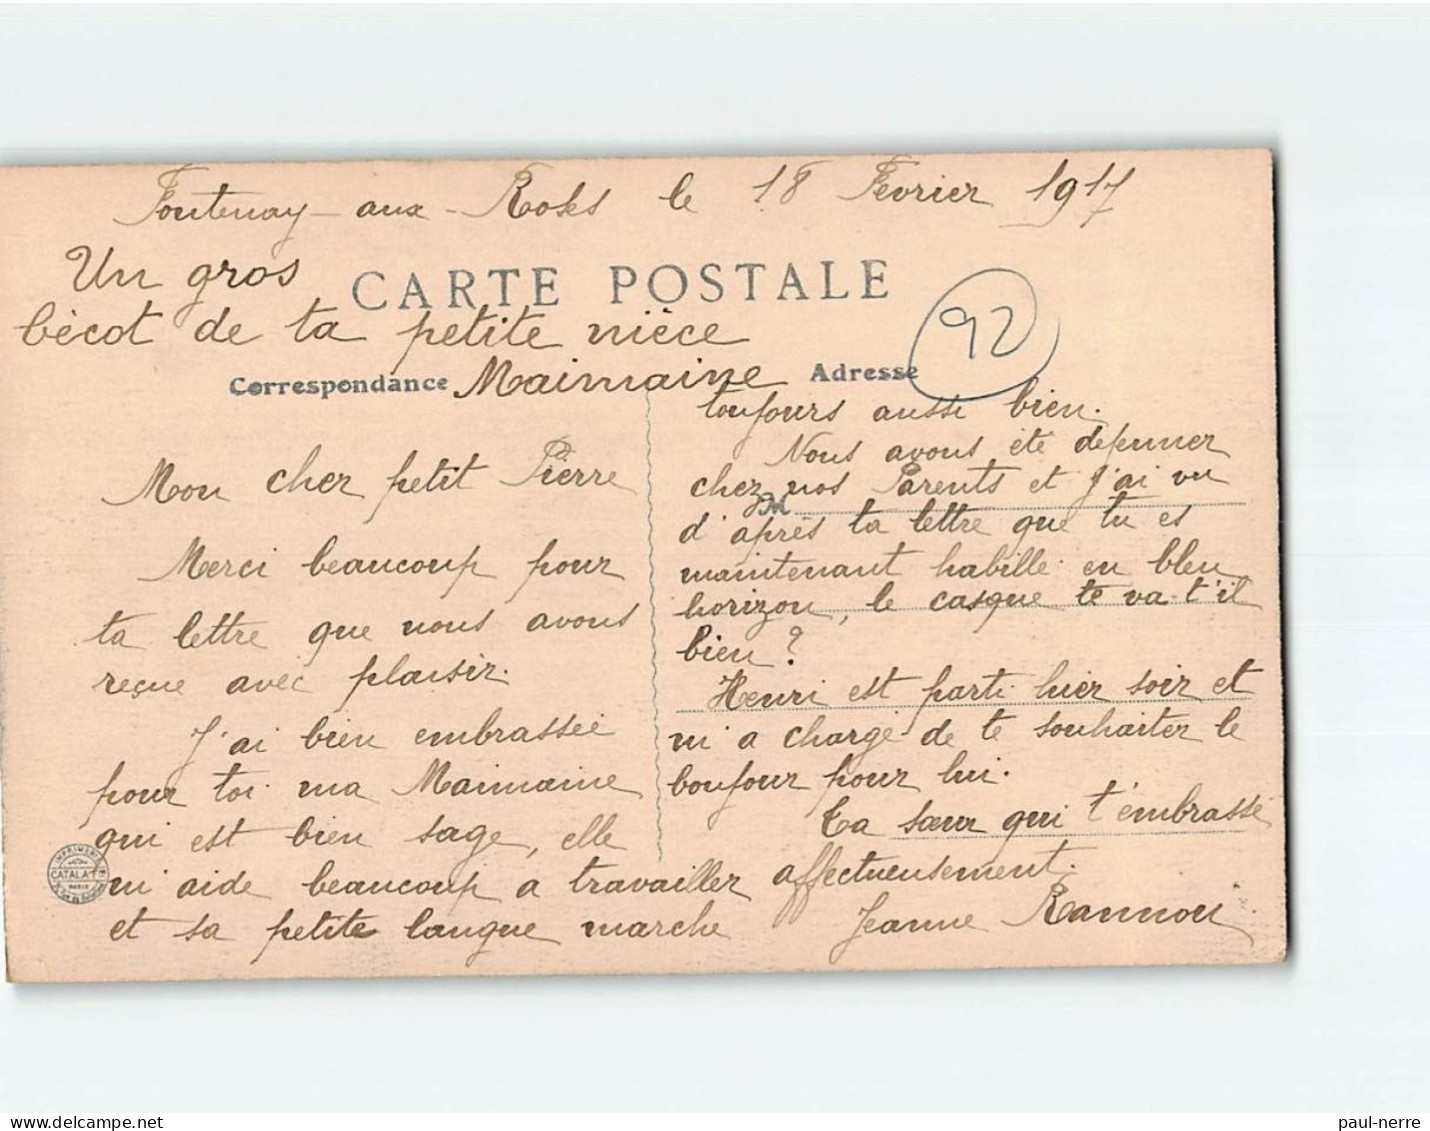 Fontenay-aux-Roses le 18 Fevrier 1917
Un gros
bécot de ta petite nièce
Maimaine
CARTE POSTALE
92
Correspondance
Adresse
Mon cher petit Pierre
Merci beaucoup pour
ta lettre que nous avons
reçue avec plaisir.
J'ai bien embrassée
pour toi ma Maimaine
qui est bien sage, elle
m'aide beaucoup a travailler
et sa petite langue marche
toujours aussi bien.
Nous avons été dejeuner
chez nos Parents et j'ai vu
M
d'après ta lettre que tu es
maintenant habille en bleu
horizon, le casque te va-t'il
bien?
Henri est parti hier soir et
m'a chargé de te souhaiter le
boujour pour lui.
Ta sœur qui t'embrasse
affectueusement.
Jeanne Rannou
CATALA
PARIS
paul-nerre